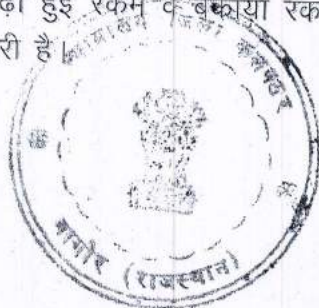 ढ़ी हुई रकम व बकाया रक
री है।
न्यायालय जिला कलक्टर
नागौर (राजस्थान)